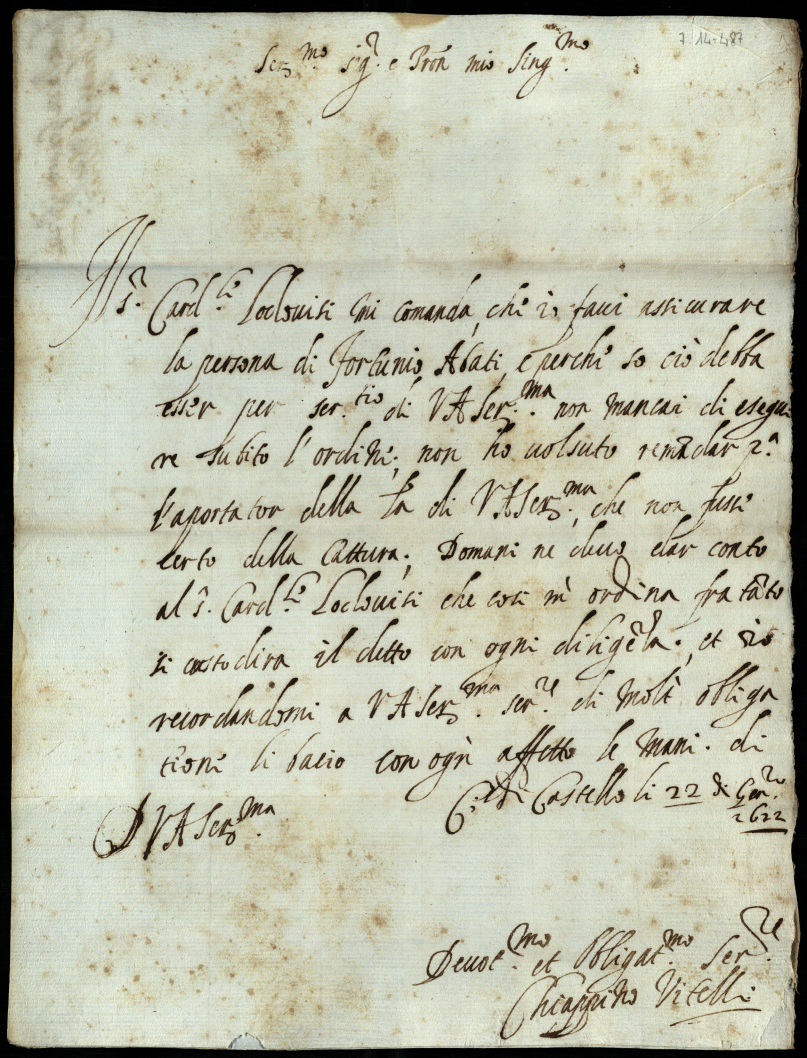 7 14-487
Ser.mo Sig.r e Pron mio Sing.mo
Il s.r Card.le Lodouisi mi comanda, che io facci assicurare
la persona di Fortunio Abati, e perche so ciò debba
esser per ser.tio di V A Ser.ma non mancai di esegui
re subito l'ordine; non ho uolsuto remādar p.a
l'aportator della l̄ra di V A Ser.ma, che non fussi
certo della cattura; Domani ne deuo dar conto
al s.r Card.le Lodouisi che cosi m̄ ordina fra tāto
si custodira il detto con ogni diligēza. et io
recordandomi a V A Ser.ma ser.re di molt obliga
tioni li bacio con ogn affetto le mani. di
C. di Castello li 22 di Gen.ro
1622
D V A Ser.ma
Deuot.mo et Obligat.mo Ser.re
Chiappino Vitelli